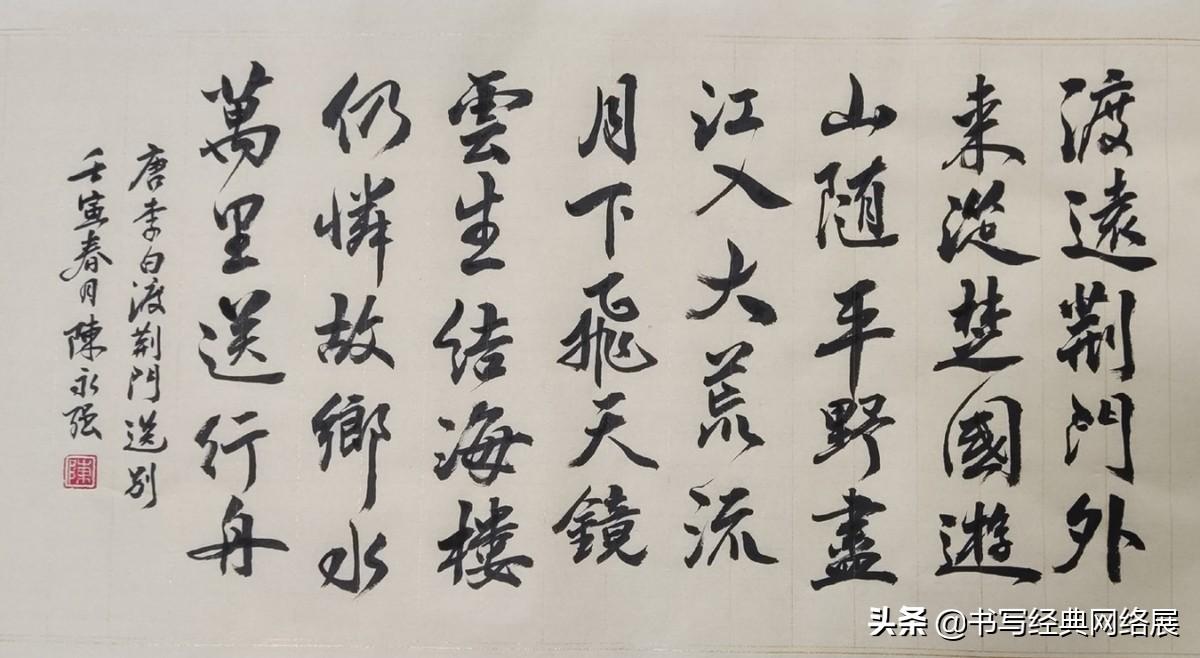 渡遠荆門外
来從楚國遊
山随平野盡
江入大荒流
月下飛天鏡
雲生结海樓
仍憐故鄉水
萬里送行舟
唐李白渡荆門送别
壬寅春月陳永强
陳
头条 @书写经典网络展